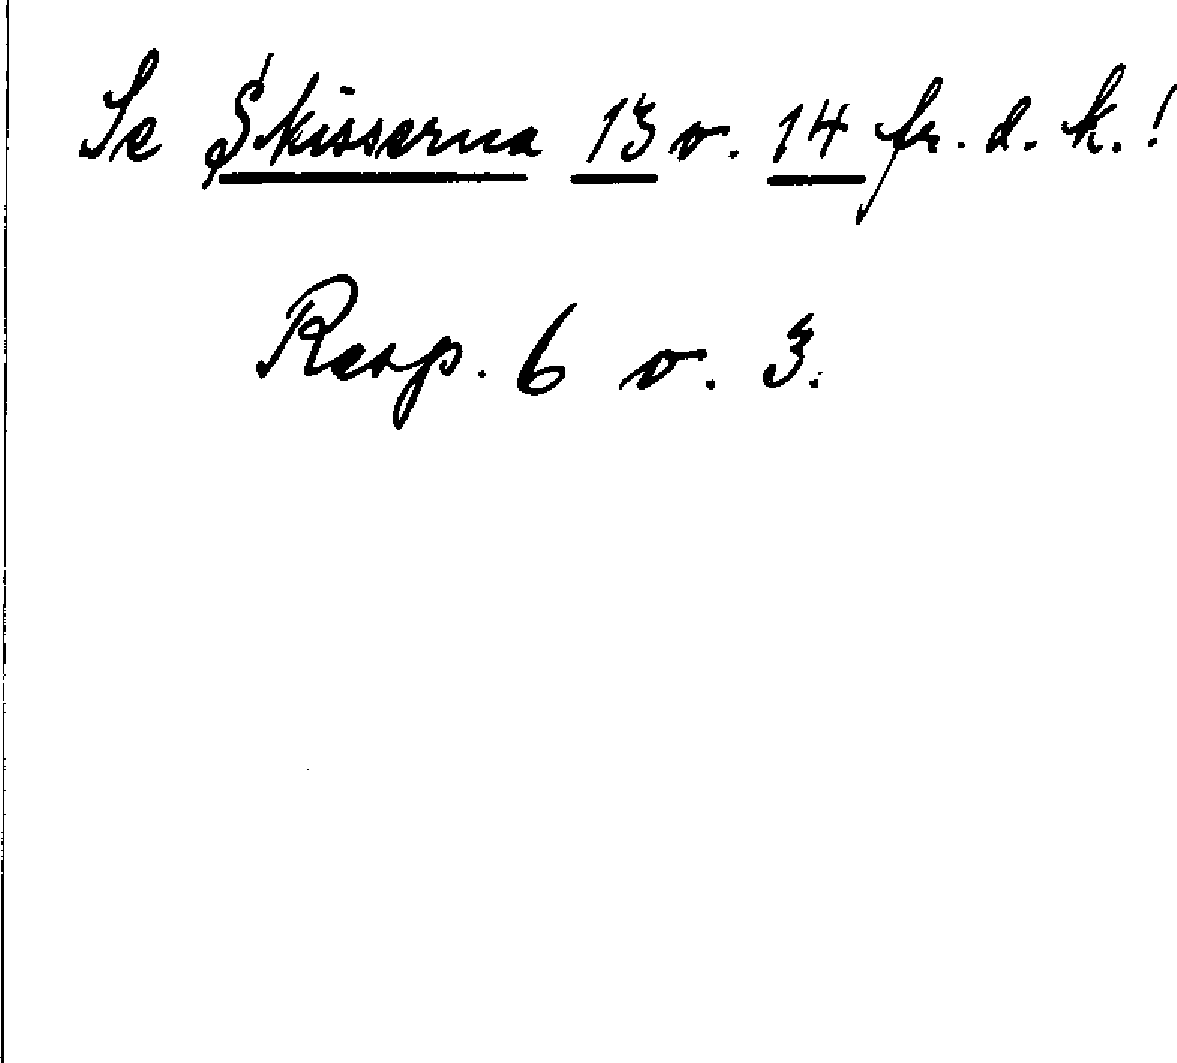 Se Skisserna 13 o. 14 fr. d. k.!
Resp. 6 o. 3.